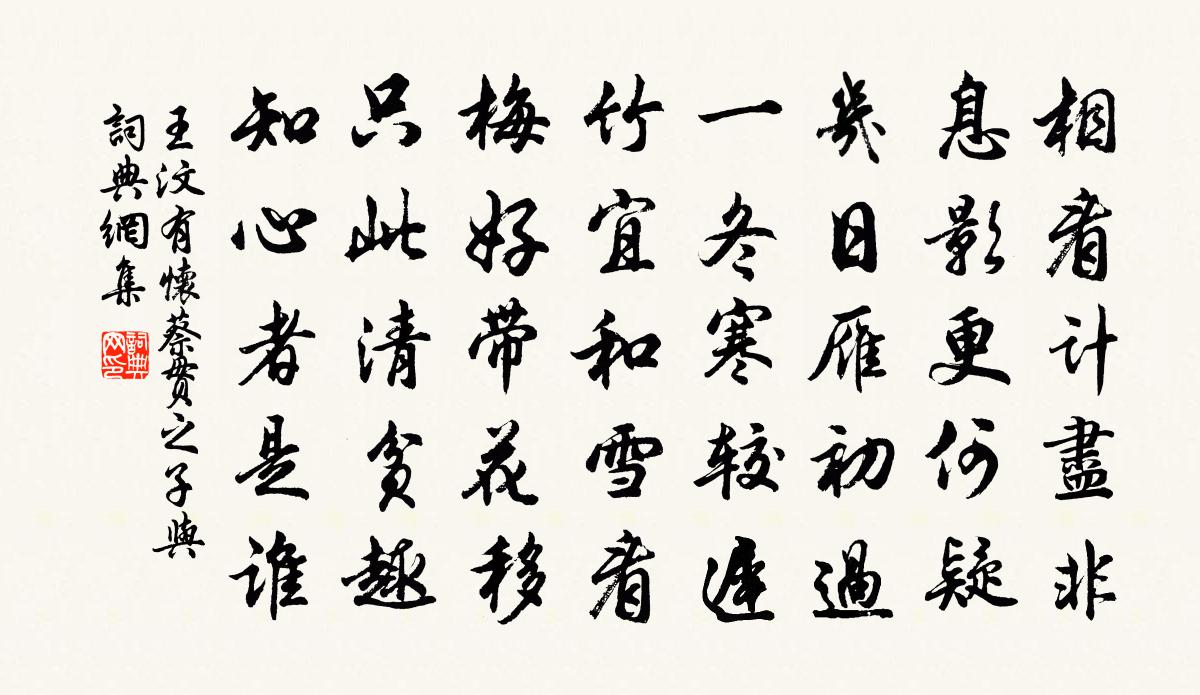 相看计盡非
息影更何疑
幾日雁初過
一冬寒较遲
竹宜和雪看
梅好带花移
只此清貧趣
知心者是谁
王汶有懷蔡贯之子與
詞典網集
詞典
网印